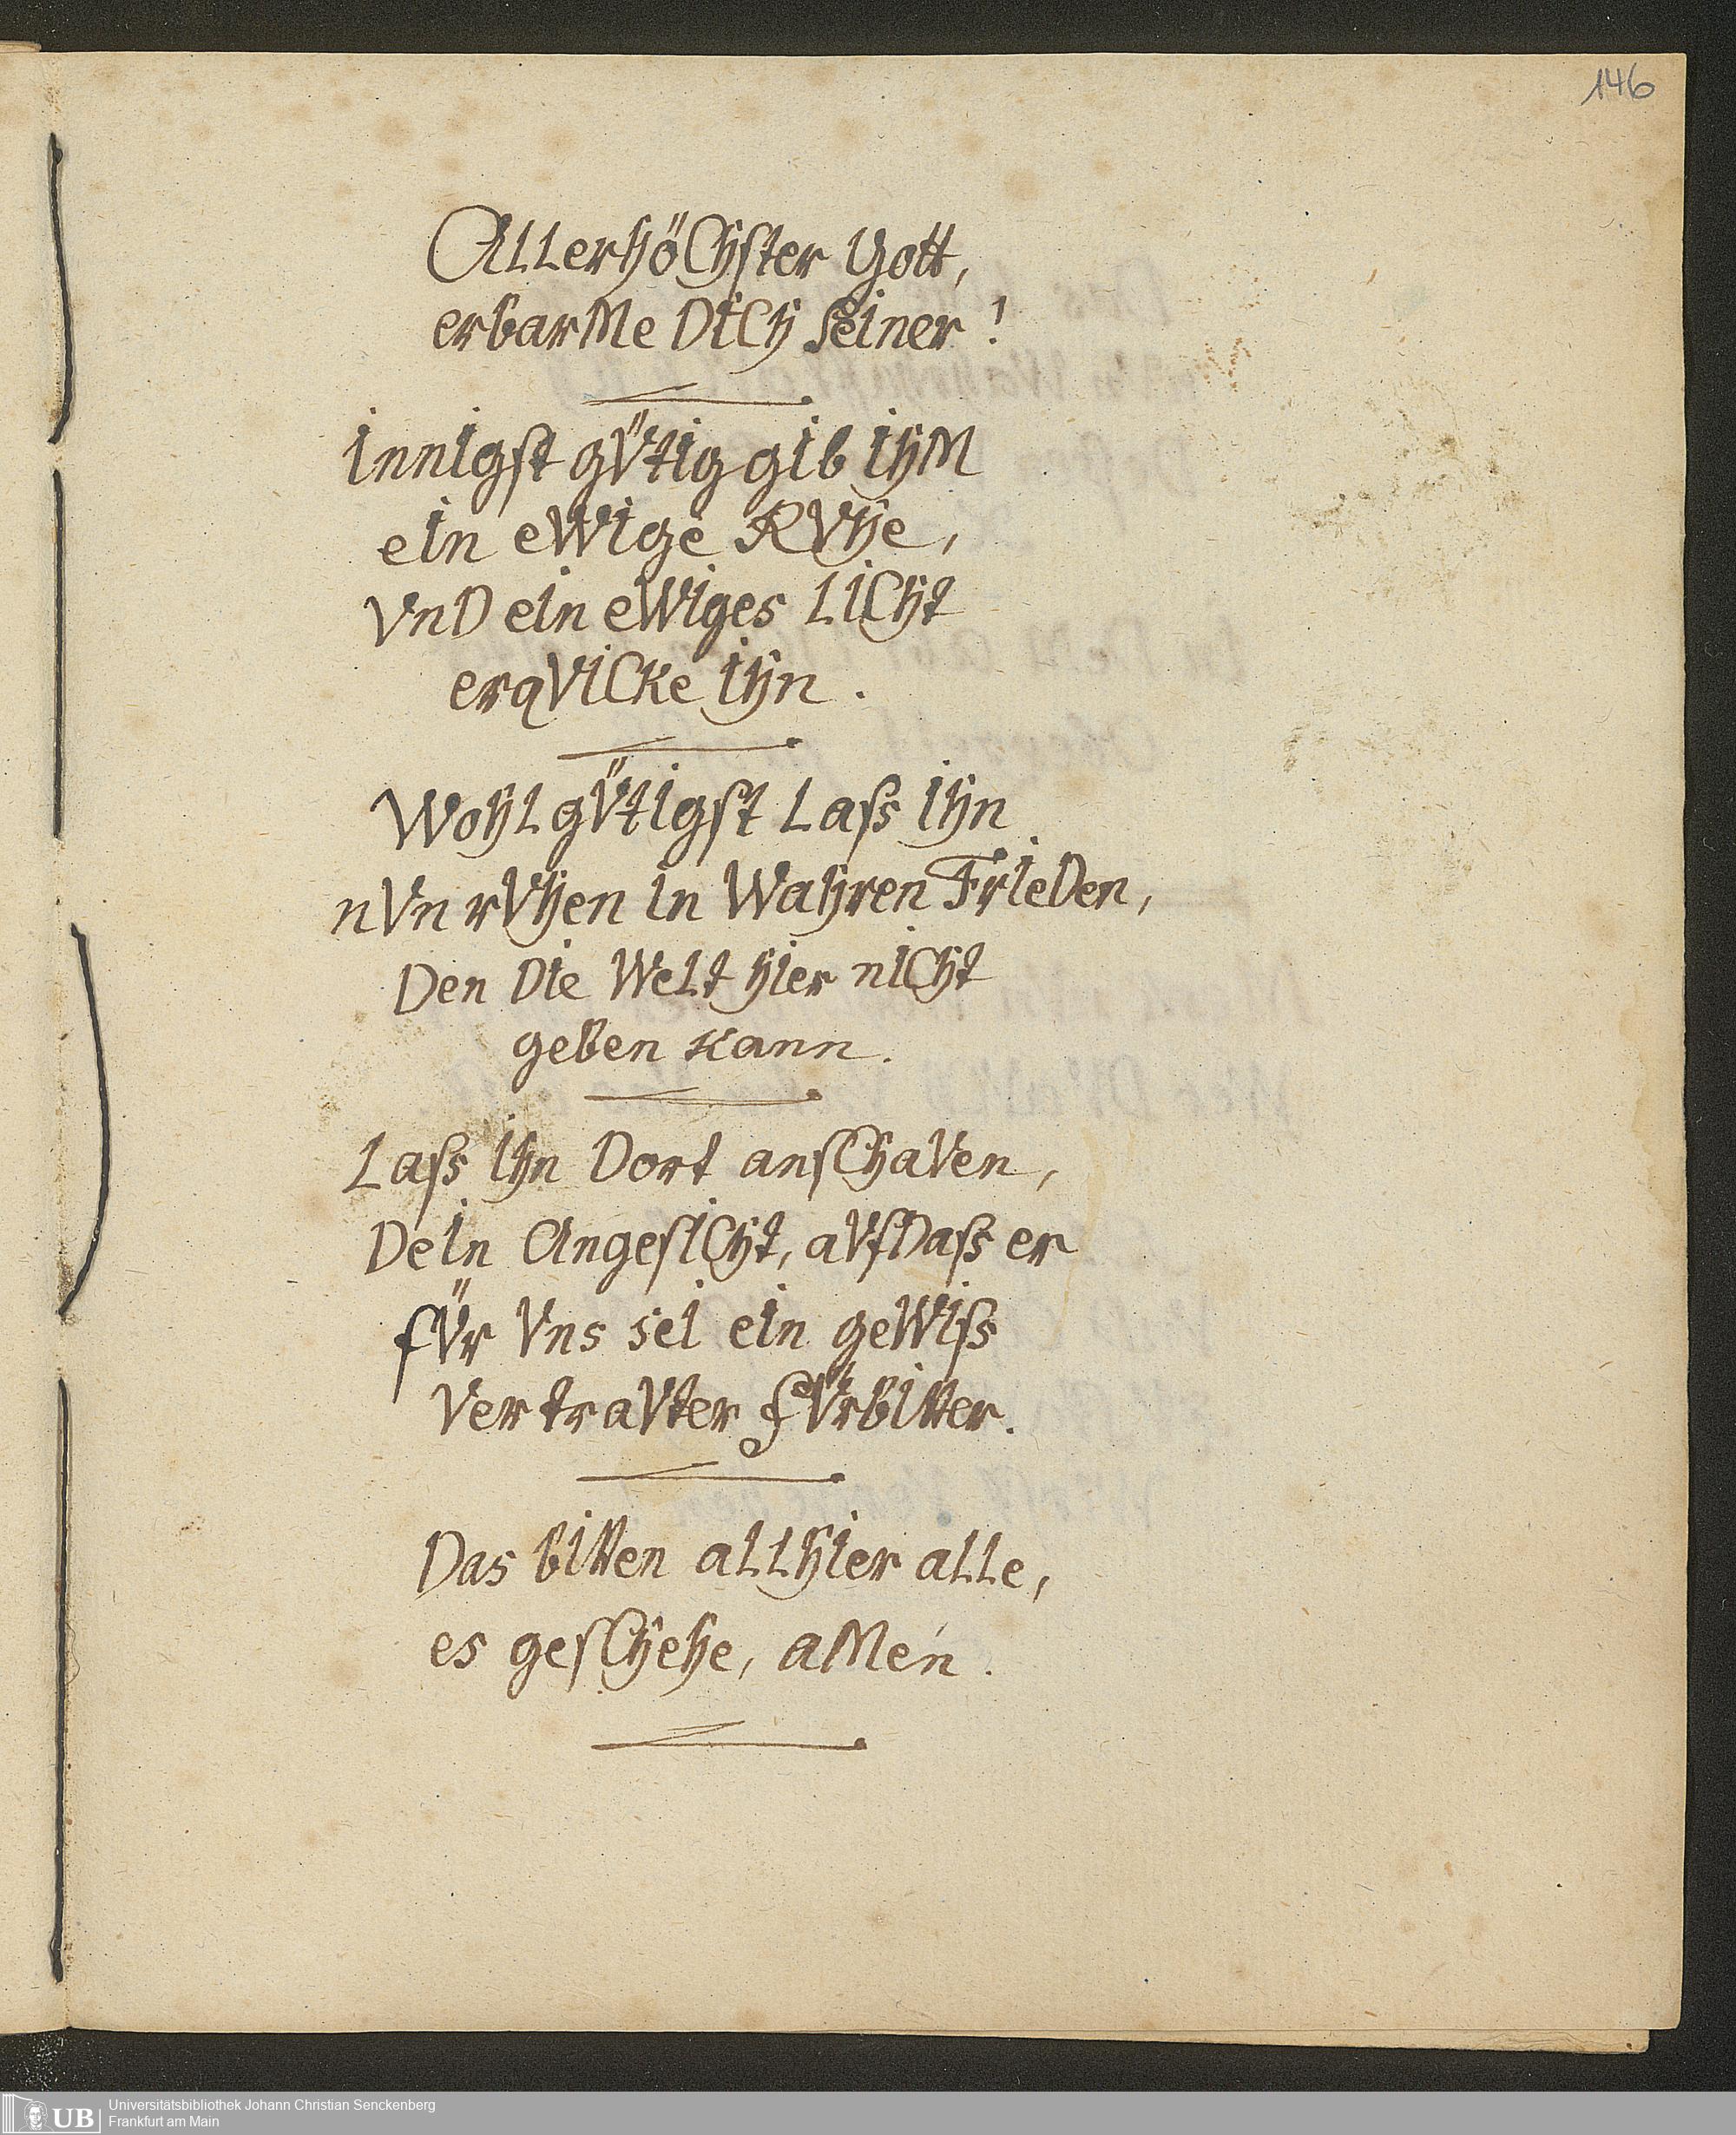 146
ALLerhöChster Gott,
erbarMe DICh seIner!
InnIgst gV̈tIg gIb IhM
eIn eWIge RVhe,
VnD eIn eWIges LICht
erqVICke Ihn.
WohL gV̈tIgst Lass Ihn
nVn rVhen In Wahren FrIeDen,
Den DIe WeLt hIer nICht
geben kann.
Lass Ihn Dort anschaVen,
DeIn AngesICht, aVfDass er
fV̈r Vns seI eIn geWIss
VertraVter fV̈rbItter.
Das bItten aLLhIer aLLe,
es gesChehe, aMen.
UB
Universitätsbibliothek Johann Christian Senckenberg
Frankfurt am Main